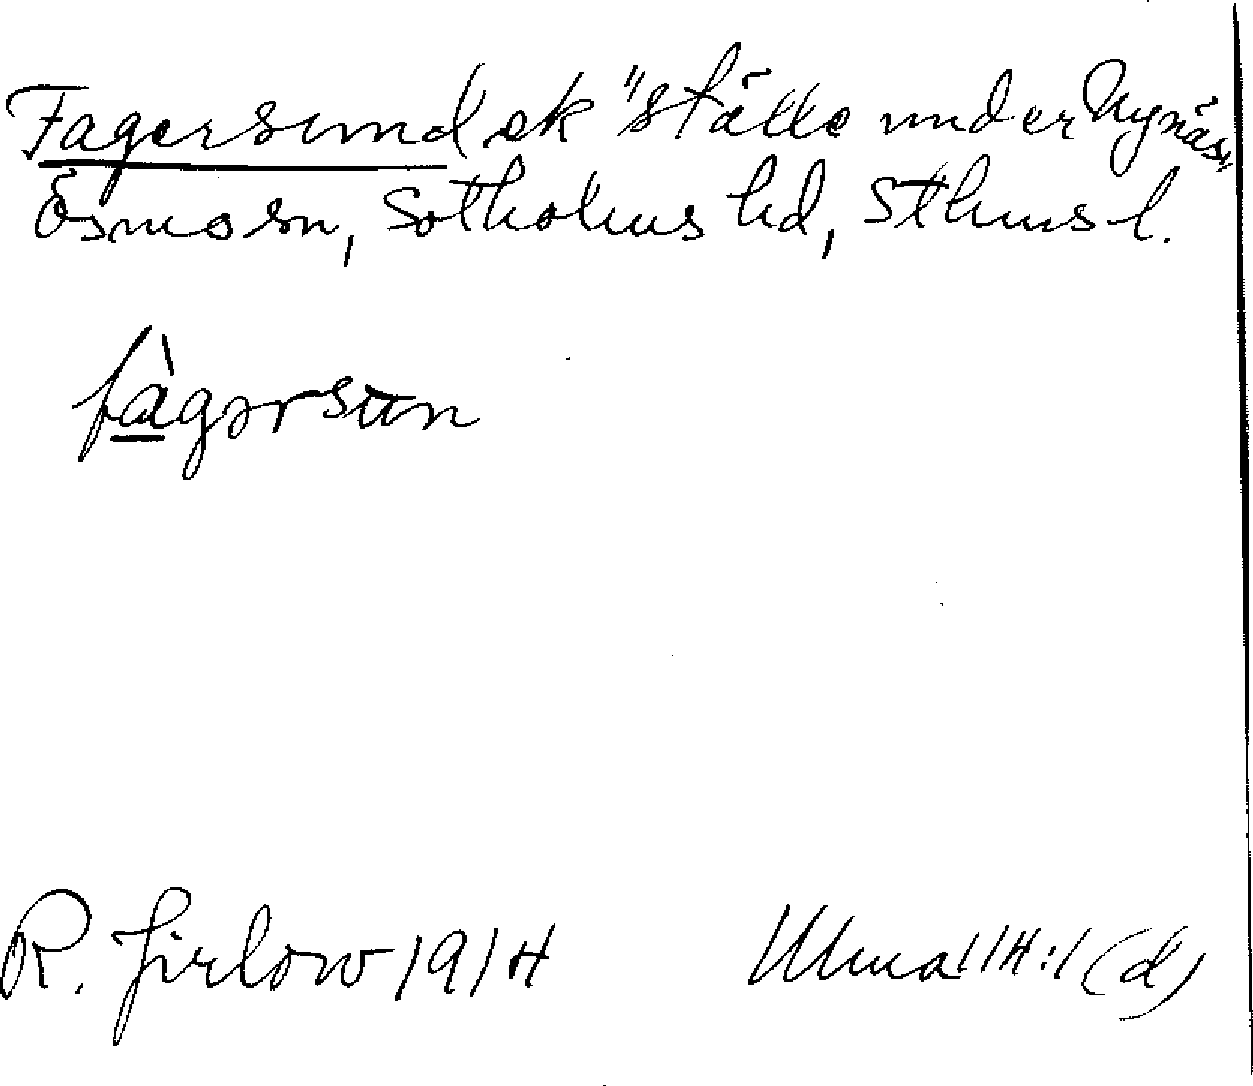 Fagersund ek "ställe under Nynäs"
Ösmo sn, Sotholms hd, Sthms l.
fàgərsun
R. Jirlow 1914
Ulma 114:1 (d)